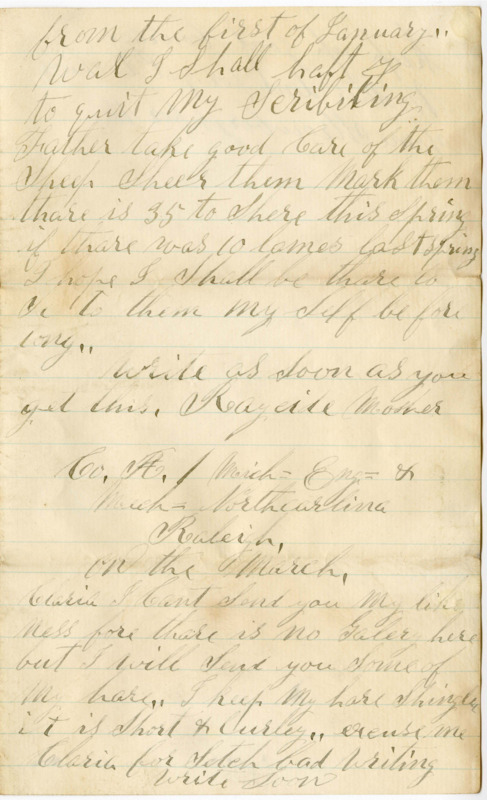 from the first of January,,
Wal I Shall haft
to quit My Scribiling
Father take good Care of the
Sheep Sheer them Mark them
thare is 35 to Shere this Spring
if thare was 10 lames last spring
I hope I Shall be thare to
to them my Self before
long,,
Write as Soon as you
get this, Mower
Co. / Mich= Eng= &
Mech= Northcarlina
Raleigh,
on the March,
Claria I Cant Send you My like
ness fore thare is no Galery here
but I will Send you Some of
My hare,, I keep My hare Shingled
it is Short & Curley,, excuse me
Claria for Sutch bad Writing
Write Soon